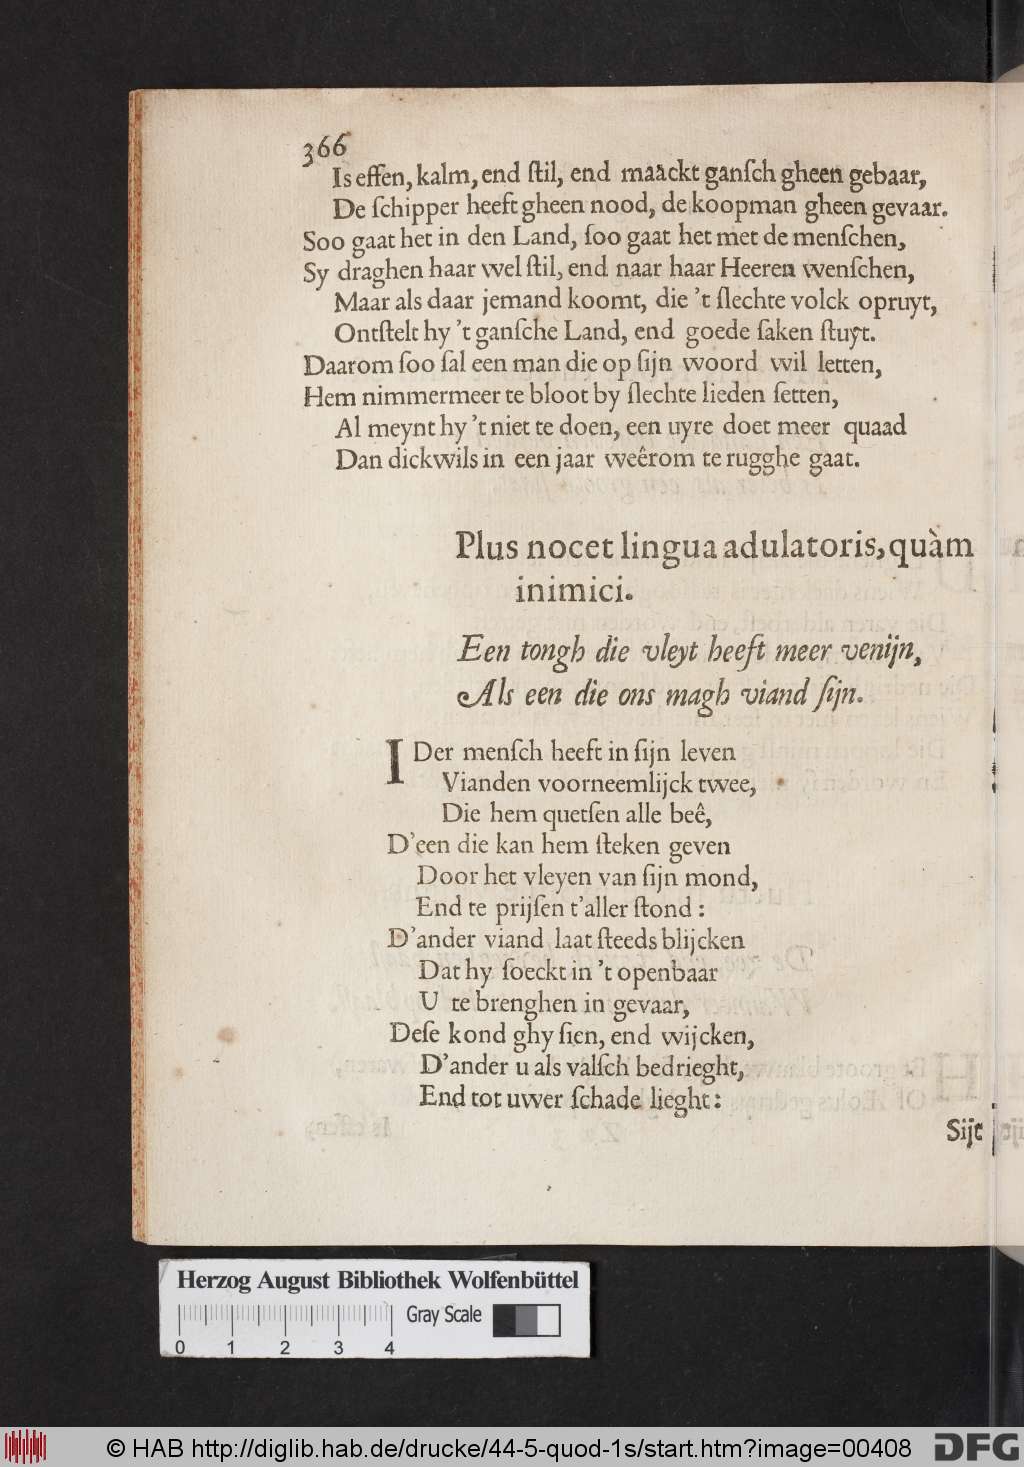 366
Is effen, kalm, end ſtil, end maackt ganſch gheen gebaar,
De ſchipper heeft gheen nood, de koopman gheen gevaar.
Soo gaat het in den Land, ſoo gaat het met de menſchen,
Sy draghen haar wel ſtil, end naar haar Heeren wenſchen,
Maar als daar jemand koomt, die 't ſlechte volck opruyt,
Ontſtelt hy 't ganſche Land, end goede ſaken ſtuyt.
Daarom ſoo ſal een man die op ſijn woord wil letten,
Hem nimmermeer te bloot by ſlechte lieden ſetten,
Al meynt hy 't niet te doen, een uyre doet meer quaad
Dan dickwils in een jaar weêrom te rugghe gaat.
Plus nocet lingua adulatoris, quàm
inimici.
Een tongh die vleyt heeft meer venijn,
Als een die ons magh viand ſijn.
IDer menſch heeft in ſijn leven
Vianden voorneemlijck twee,
Die hem quetſen alle beê,
D'een die kan hem ſteken geven
Door het vleyen van ſijn mond,
End te prijſen t'aller ſtond:
D'ander viand laat ſteeds blijcken
Dat hy ſoeckt in 't openbaar
U te brenghen in gevaar,
Deſe kond ghy ſien, end wijcken,
D'ander u als valſch bedrieght,
End tot uwer ſchade lieght:
Sijt
Herzog August Bibliothek Wolfenbüttel
Gray Scale
0 1 2 3 4
© HAB http://diglib.hab.de/drucke/44-5-quod-1s/start.htm?image=00408
DFG